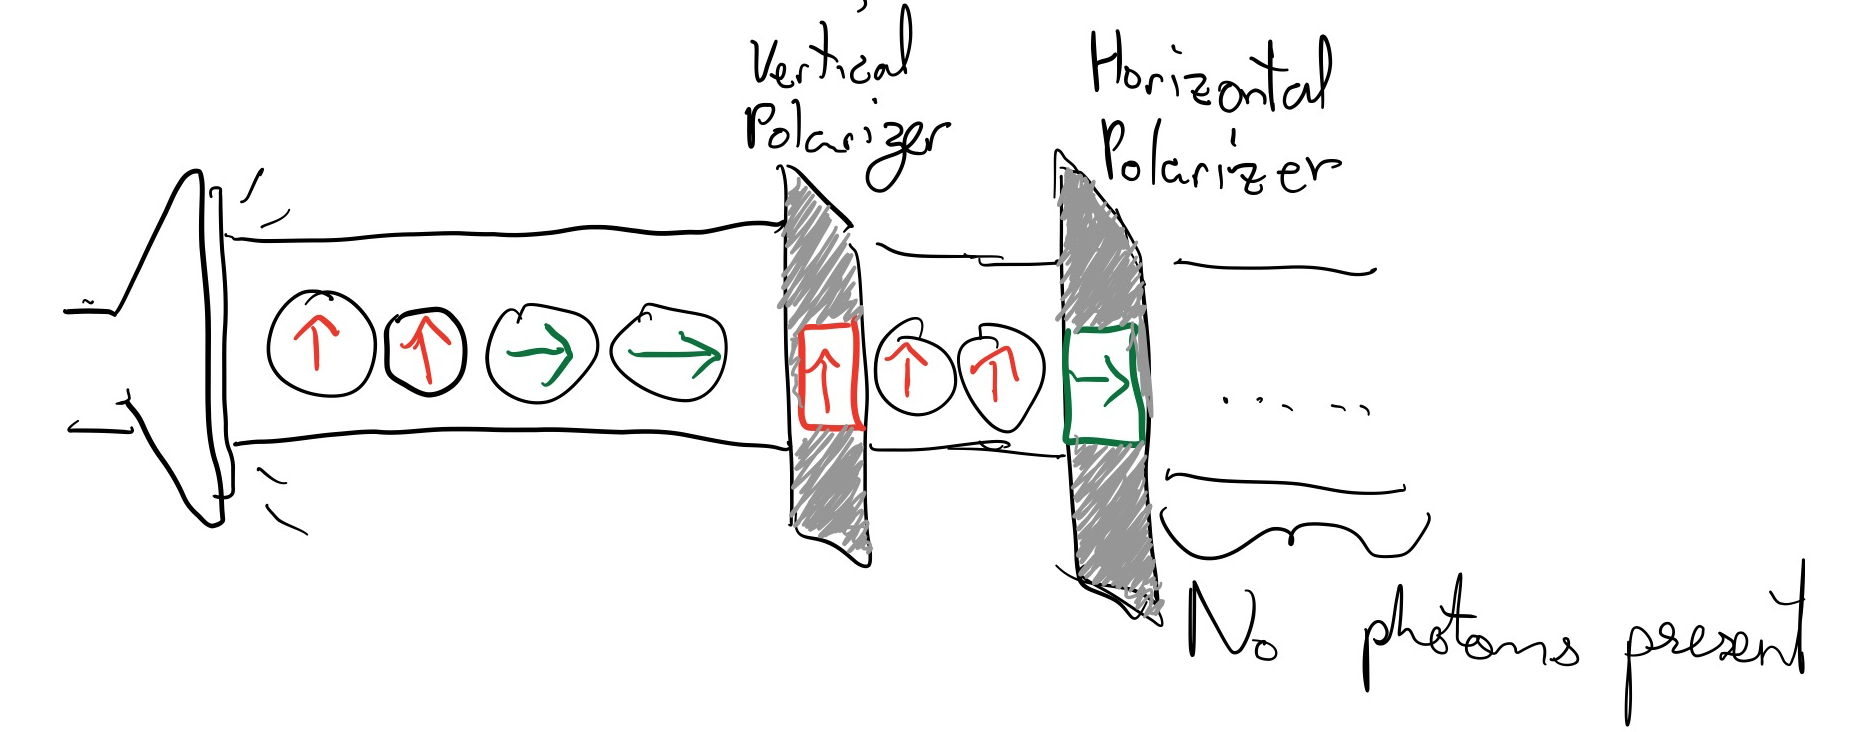 Vertical
Polarizer
Horizontal
Polarizer
No photons present